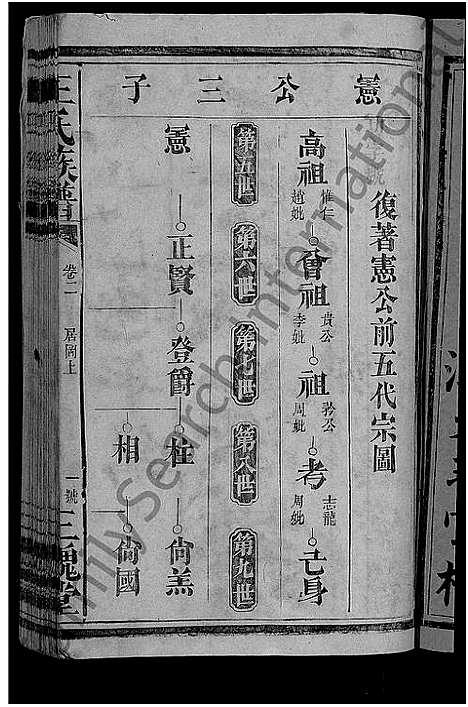 憲公三子
復著憲公前五代宗圖
高祖 惟仁 趙妣
曾祖 貴公 李妣
祖 矜公 周妣
考 志龍 周妣
己身
第五世 第六世 第七世 第八世 第九世
憲 正賢 登爵 柱 尙羔
相 尙國
王氏族譜 卷二 居岡上 一號 三槐堂
FamilySearch International